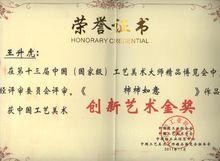 荣誉证书
HONORARY CREDENTIAL
王升虎：
在第十三届中国（国家级）工艺美术大师精品博览会中
经评审委员会评审，《 神神如意 》作品
获中国工艺美术
创新艺术金奖